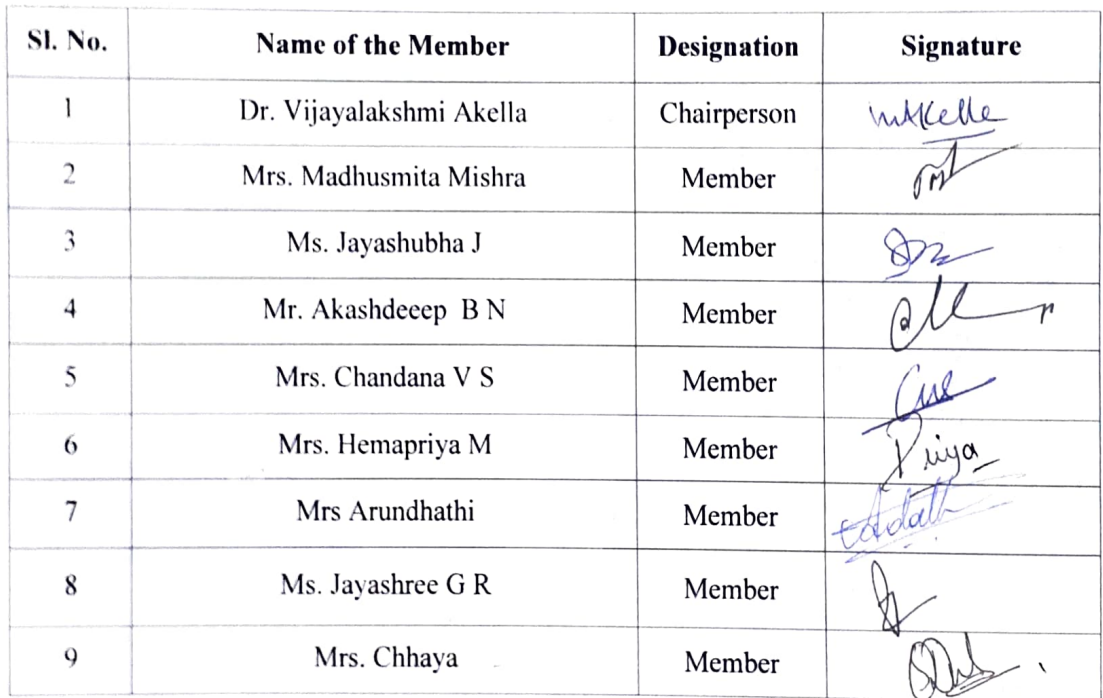 Sl. No. Name of the Member Designation Signature
1 Dr. Vijayalakshmi Akella Chairperson
2 Mrs. Madhusmita Mishra Member
3 Ms. Jayashubha J Member
4 Mr. Akashdeeep B N Member
5 Mrs. Chandana V S Member
6 Mrs. Hemapriya M Member Priya
7 Mrs Arundhathi Member
8 Ms. Jayashree G R Member
9 Mrs. Chhaya Member